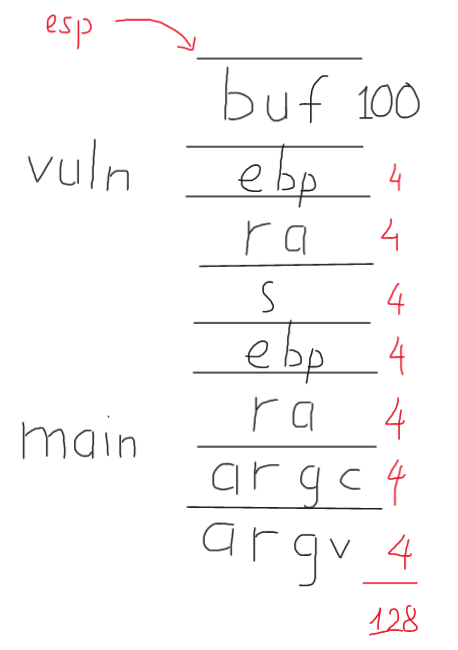 esp
buf 100
vuln
ebp 4
ra 4
s 4
ebp 4
ra 4
main
argc 4
argv 4
128